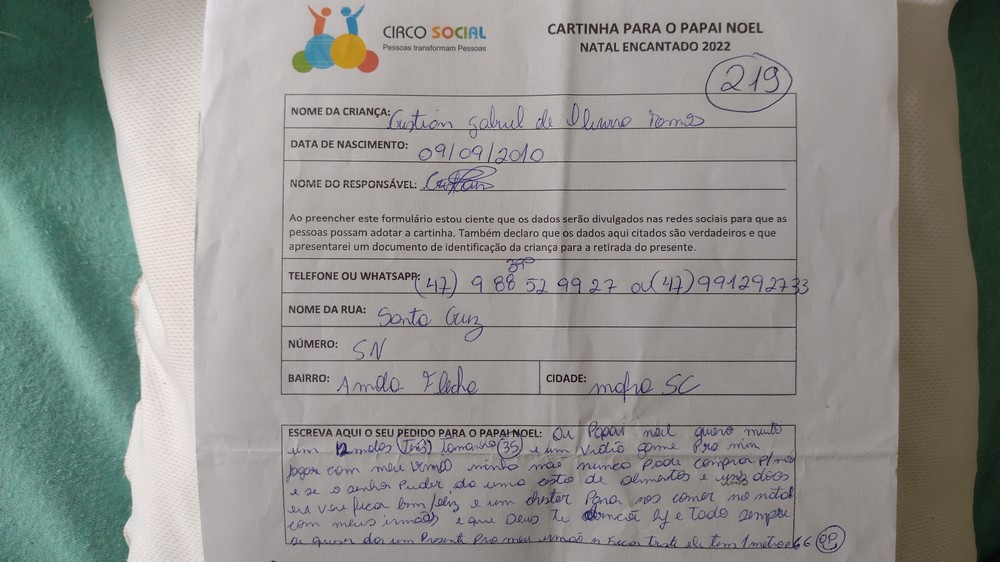 CIRCO SOCIAL
Pessoas transformam Pessoas
CARTINHA PARA O PAPAI NOEL
NATAL ENCANTADO 2022
219
NOME DA CRIANÇA: Cristian gabriel de
DATA DE NASCIMENTO: 09/09/2010
NOME DO RESPONSÁVEL:
Ao preencher este formulário estou ciente que os dados serão divulgados nas redes sociais para que as
pessoas possam adotar a cartinha. Também declaro que os dados aqui citados são verdadeiros e que
apresentarei um documento de identificação da criança para a retirada do presente.
TELEFONE OU WHATSAPP: (47) 9 88 52 99 27 ou (47) 991292733
NOME DA RUA: Santa Cruz
NÚMERO: SN
BAIRRO: Amola Flecha
CIDADE: mafra SC
ESCREVA AQUI O SEU PEDIDO PARA O PAPAI NOEL: Papai noel quero muito
um (Três) Tamanho (35) e um vidio game Pro mim
jogar com meu irmão minha mãe nunca Pode comprar p/nós
e se o senhor Puder da uma cesta de alimentos e uns doces
eu vou ficar bem feliz e um chester Para nos comer no natal
com meus irmãos e que Deus Te e Todo sempre
se quiser dar um Presente Pro meu irmão Ficar triste ele tem 1 metro e 66